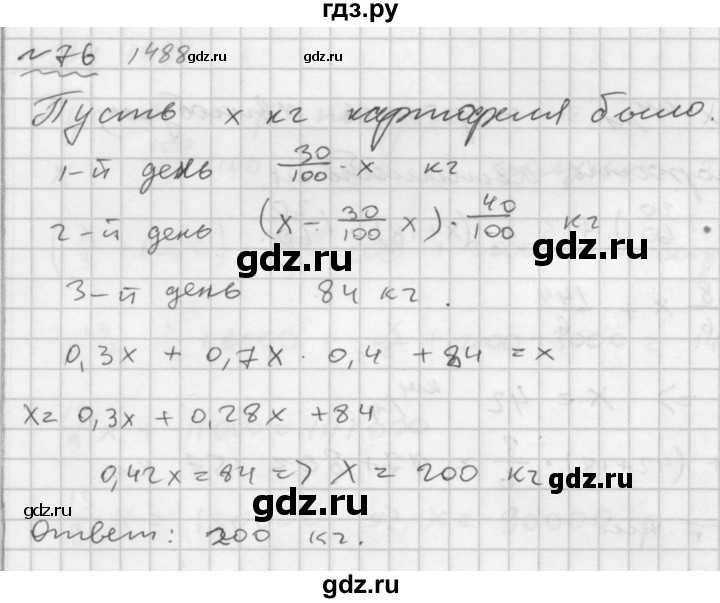 гдз.ру
№76 1488 gdz.ru gdz.ru
Пусть x кг картофеля было.
1-й день 30/100 · x кг
gdz.ru gdz.ru
2-й день (x - 30/100 x) · 40/100 кг
gdz.ru gdz.ru
3-й день 84 кг.
0,3x + 0,7x · 0,4 + 84 = x
gdz.ru gdz.ru
x = 0,3x + 0,28x + 84
0,42x = 84 => x = 200 кг
gdz.ru gdz.ru
gdz.ru gdz.ru
Ответ: 200 кг.
gdz.ru